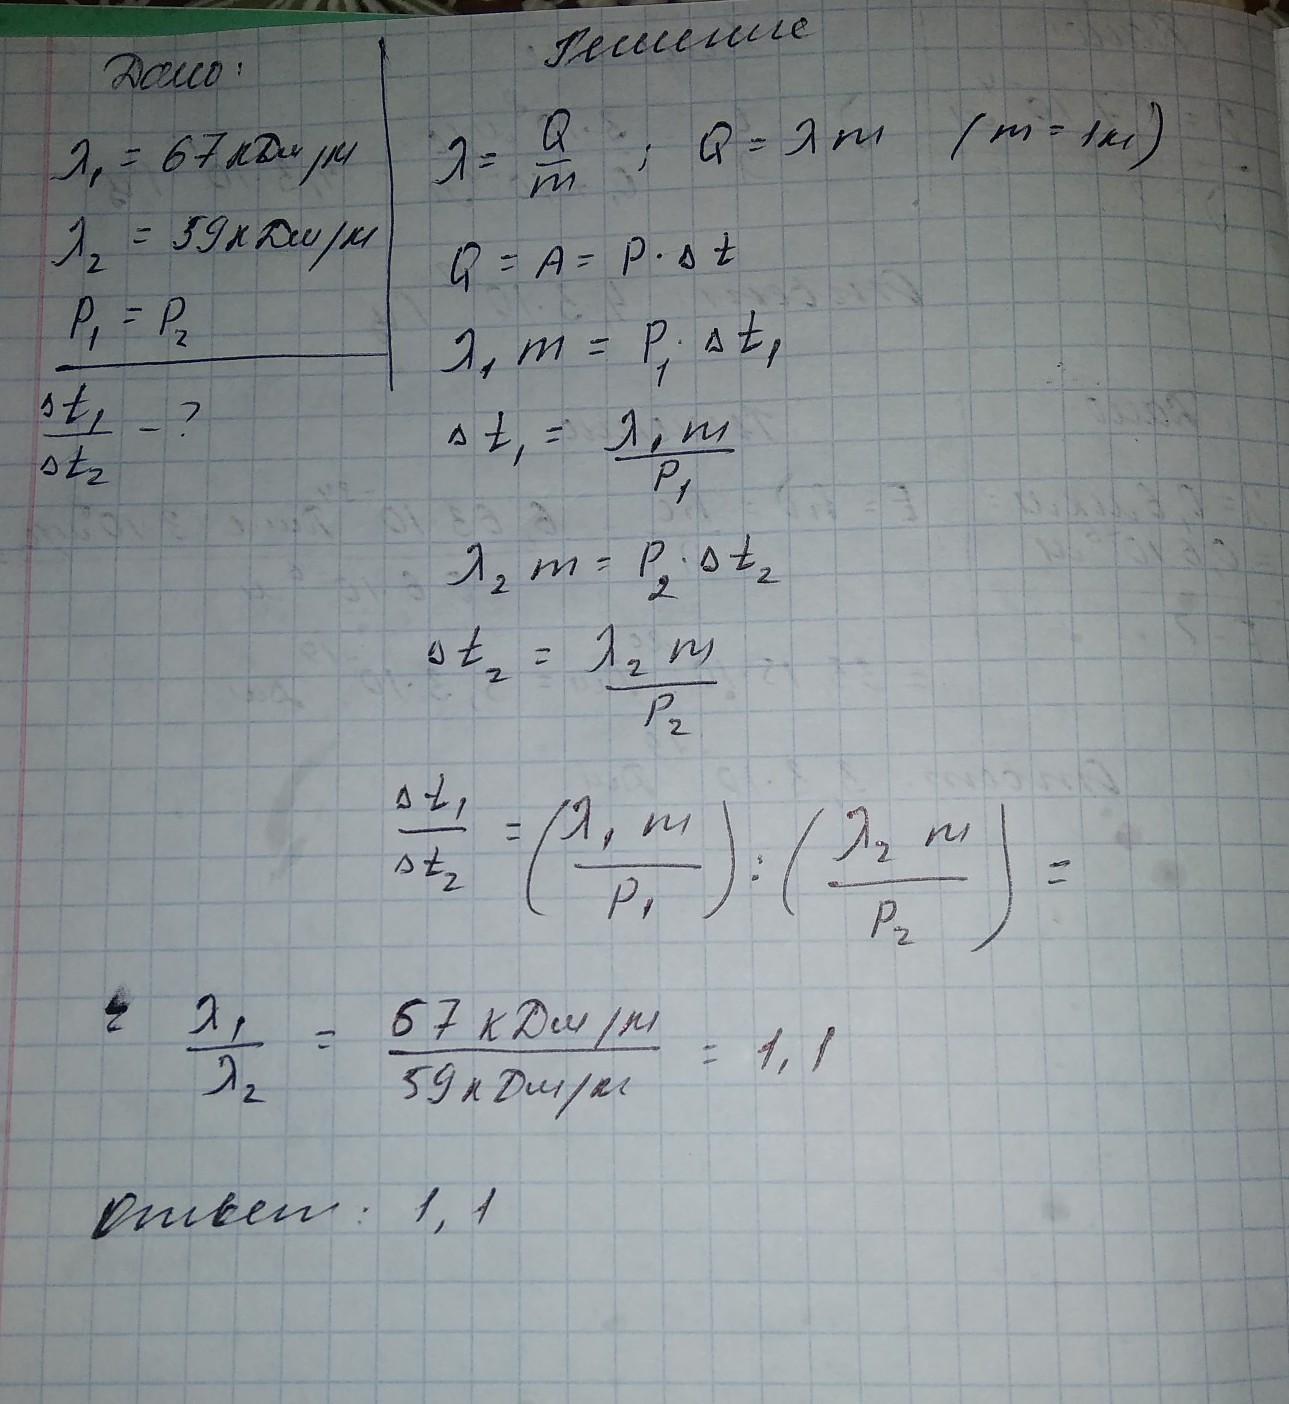 Дано:
λ₁ = 67 кДж/кг
λ₂ = 59 кДж/кг
P₁ = P₂
Δt₁/Δt₂ - ?
Решение
λ = Q/m ; Q = λm (m = 1кг)
Q = A = P · Δt
λ₁ m = P₁ · Δt₁
Δt₁ = λ₁ m / P₁
λ₂ m = P₂ · Δt₂
Δt₂ = λ₂ m / P₂
Δt₁/Δt₂ = (λ₁ m / P₁) : (λ₂ m / P₂) =
λ₁/λ₂ = 67 кДж/кг / 59 кДж/кг = 1,1
Ответ: 1,1